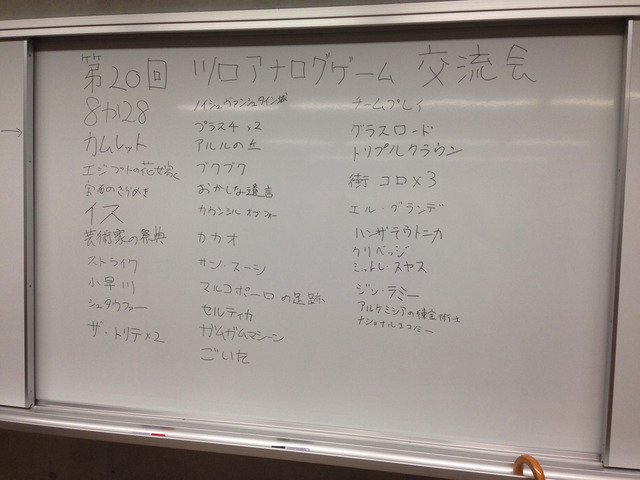 第20回 ツロアナログゲーム 交流会
8分28
カムレット
エジプトの花嫁
宝石のきらめき
イス
芸術家の祭典
ストライク
小早川
シュタウファー
ザ・トリテ×2
ノイシュヴァンシュタイン城
プラス4 ×2
アルルの丘
ブクブク
おかしな遺言
カウンシル オブ フォー
カカオ
サン・スーシ
マルコポーロの足跡
セルティカ
ガムガムマシーン
ごいた
チームプレイ
グラスロード
トリプルクラウン
街コロ×3
エル・グランデ
ハンザテウトニカ
クリベッジ
ミットレ・スヤス
ジン・ラミー
アルケミシアの錬金術士
ナショナルエコノミー